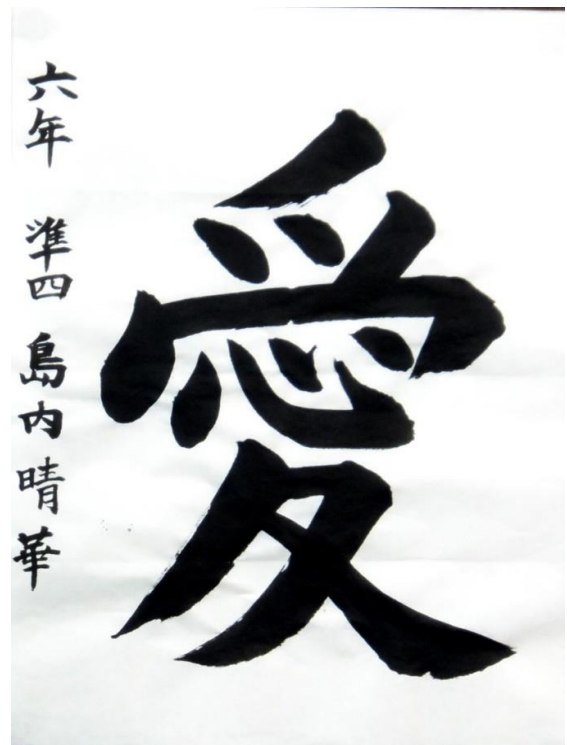 愛
六年 準四 島内晴華